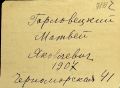 Гарловецкий
Матвей
Яковлевич
1907
Черноморская 41